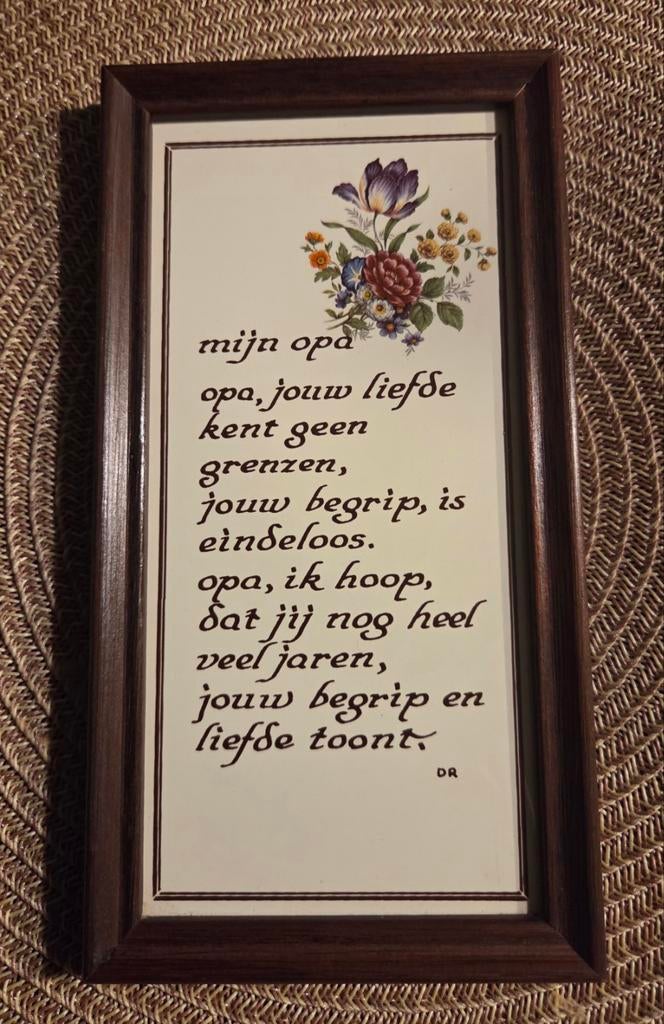 mijn opa
opa, jouw liefde
kent geen
grenzen,
jouw begrip, is
eindeloos.
opa, ik hoop,
dat jij nog heel
veel jaren,
jouw begrip en
liefde toont.
DR